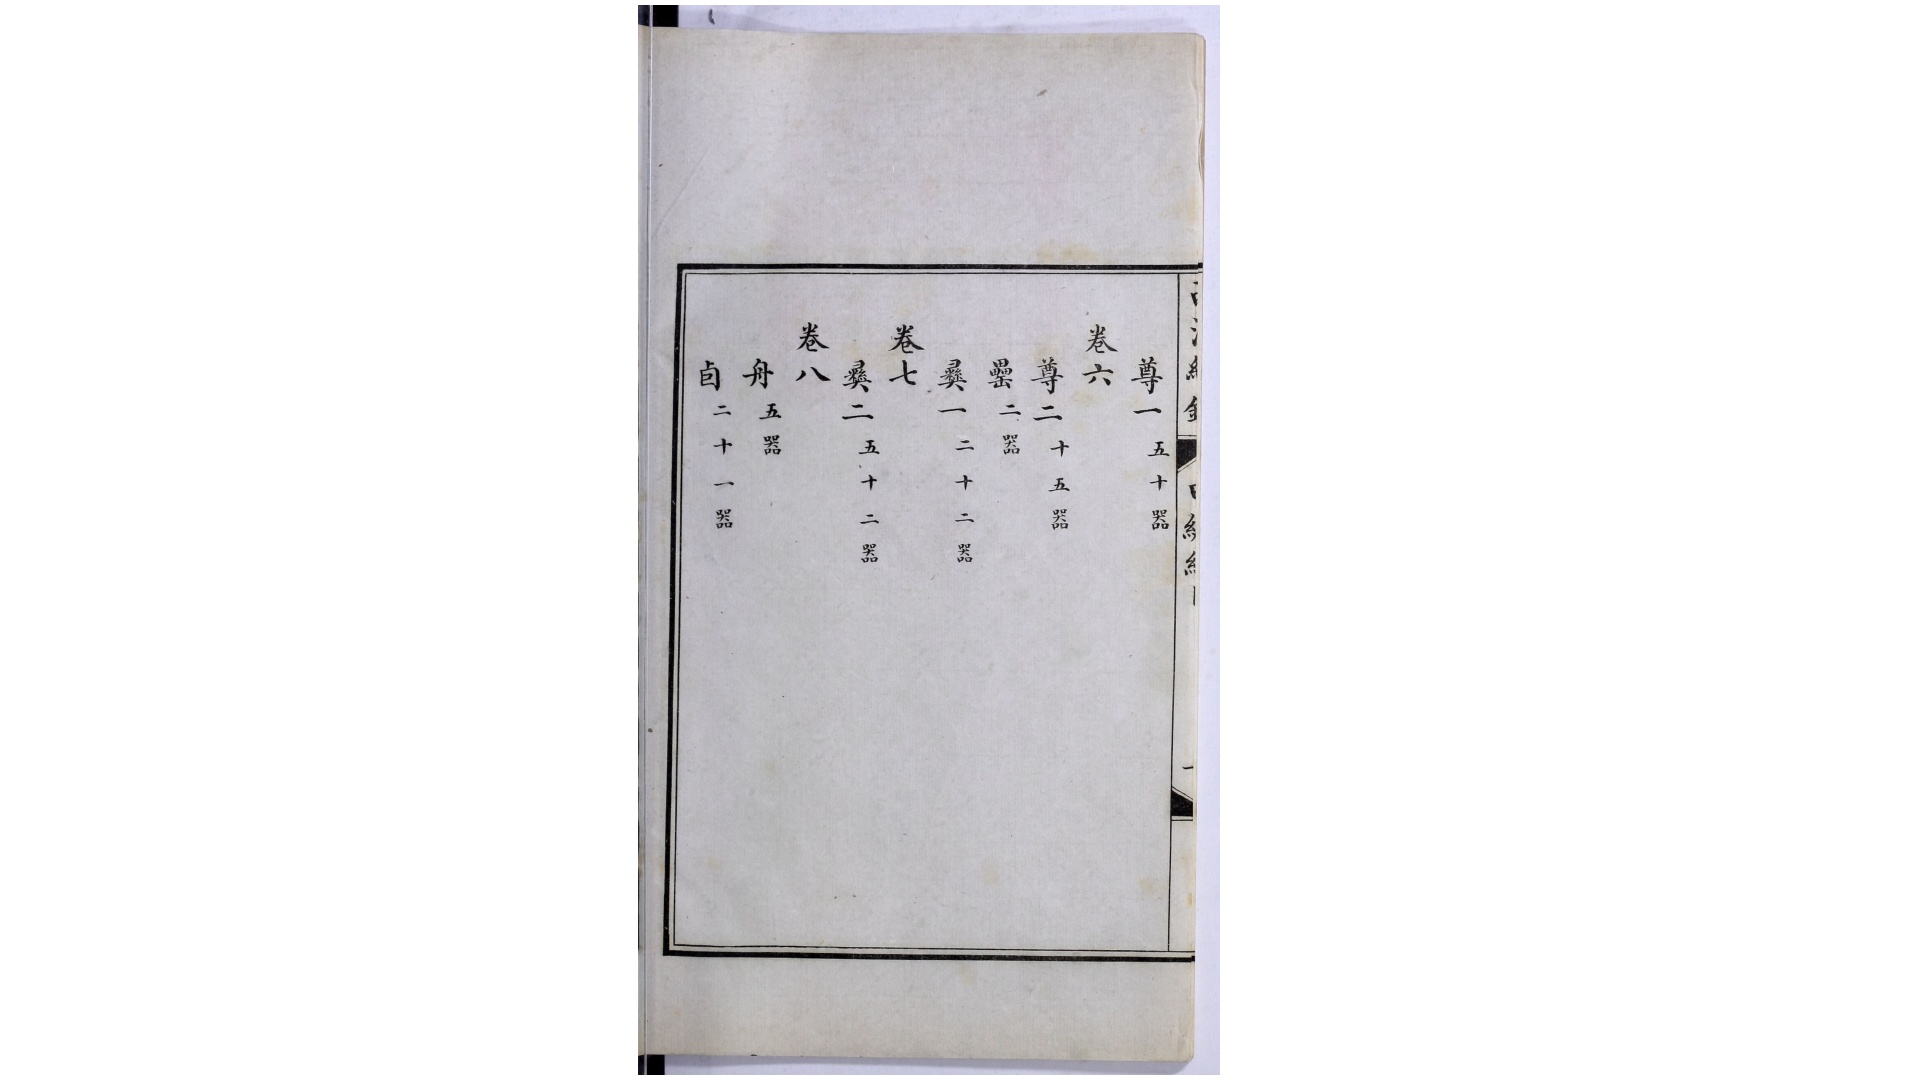 尊一 五十器
卷六
尊二 十五器
罍 二器
彝一 二十二器
卷七
彝二 五十二器
卷八
舟 五器
卣 二十一器